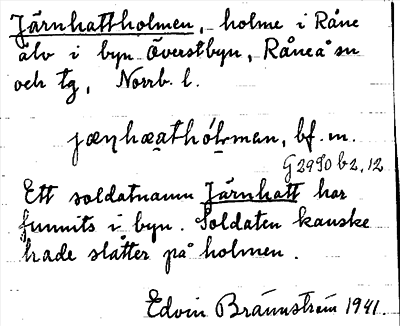 Järnhattholmen, holme i Råne
älv i byn Överstbyn, Råneå sn
och tg, Norrb. l.
jæɳhæathólman, bf. m.
G 2990 b 2, 12
Ett soldatnamn Järnhatt har
funnits i byn. Soldaten kanske
hade slåtter på holmen.
Edvin Brännström 1941.